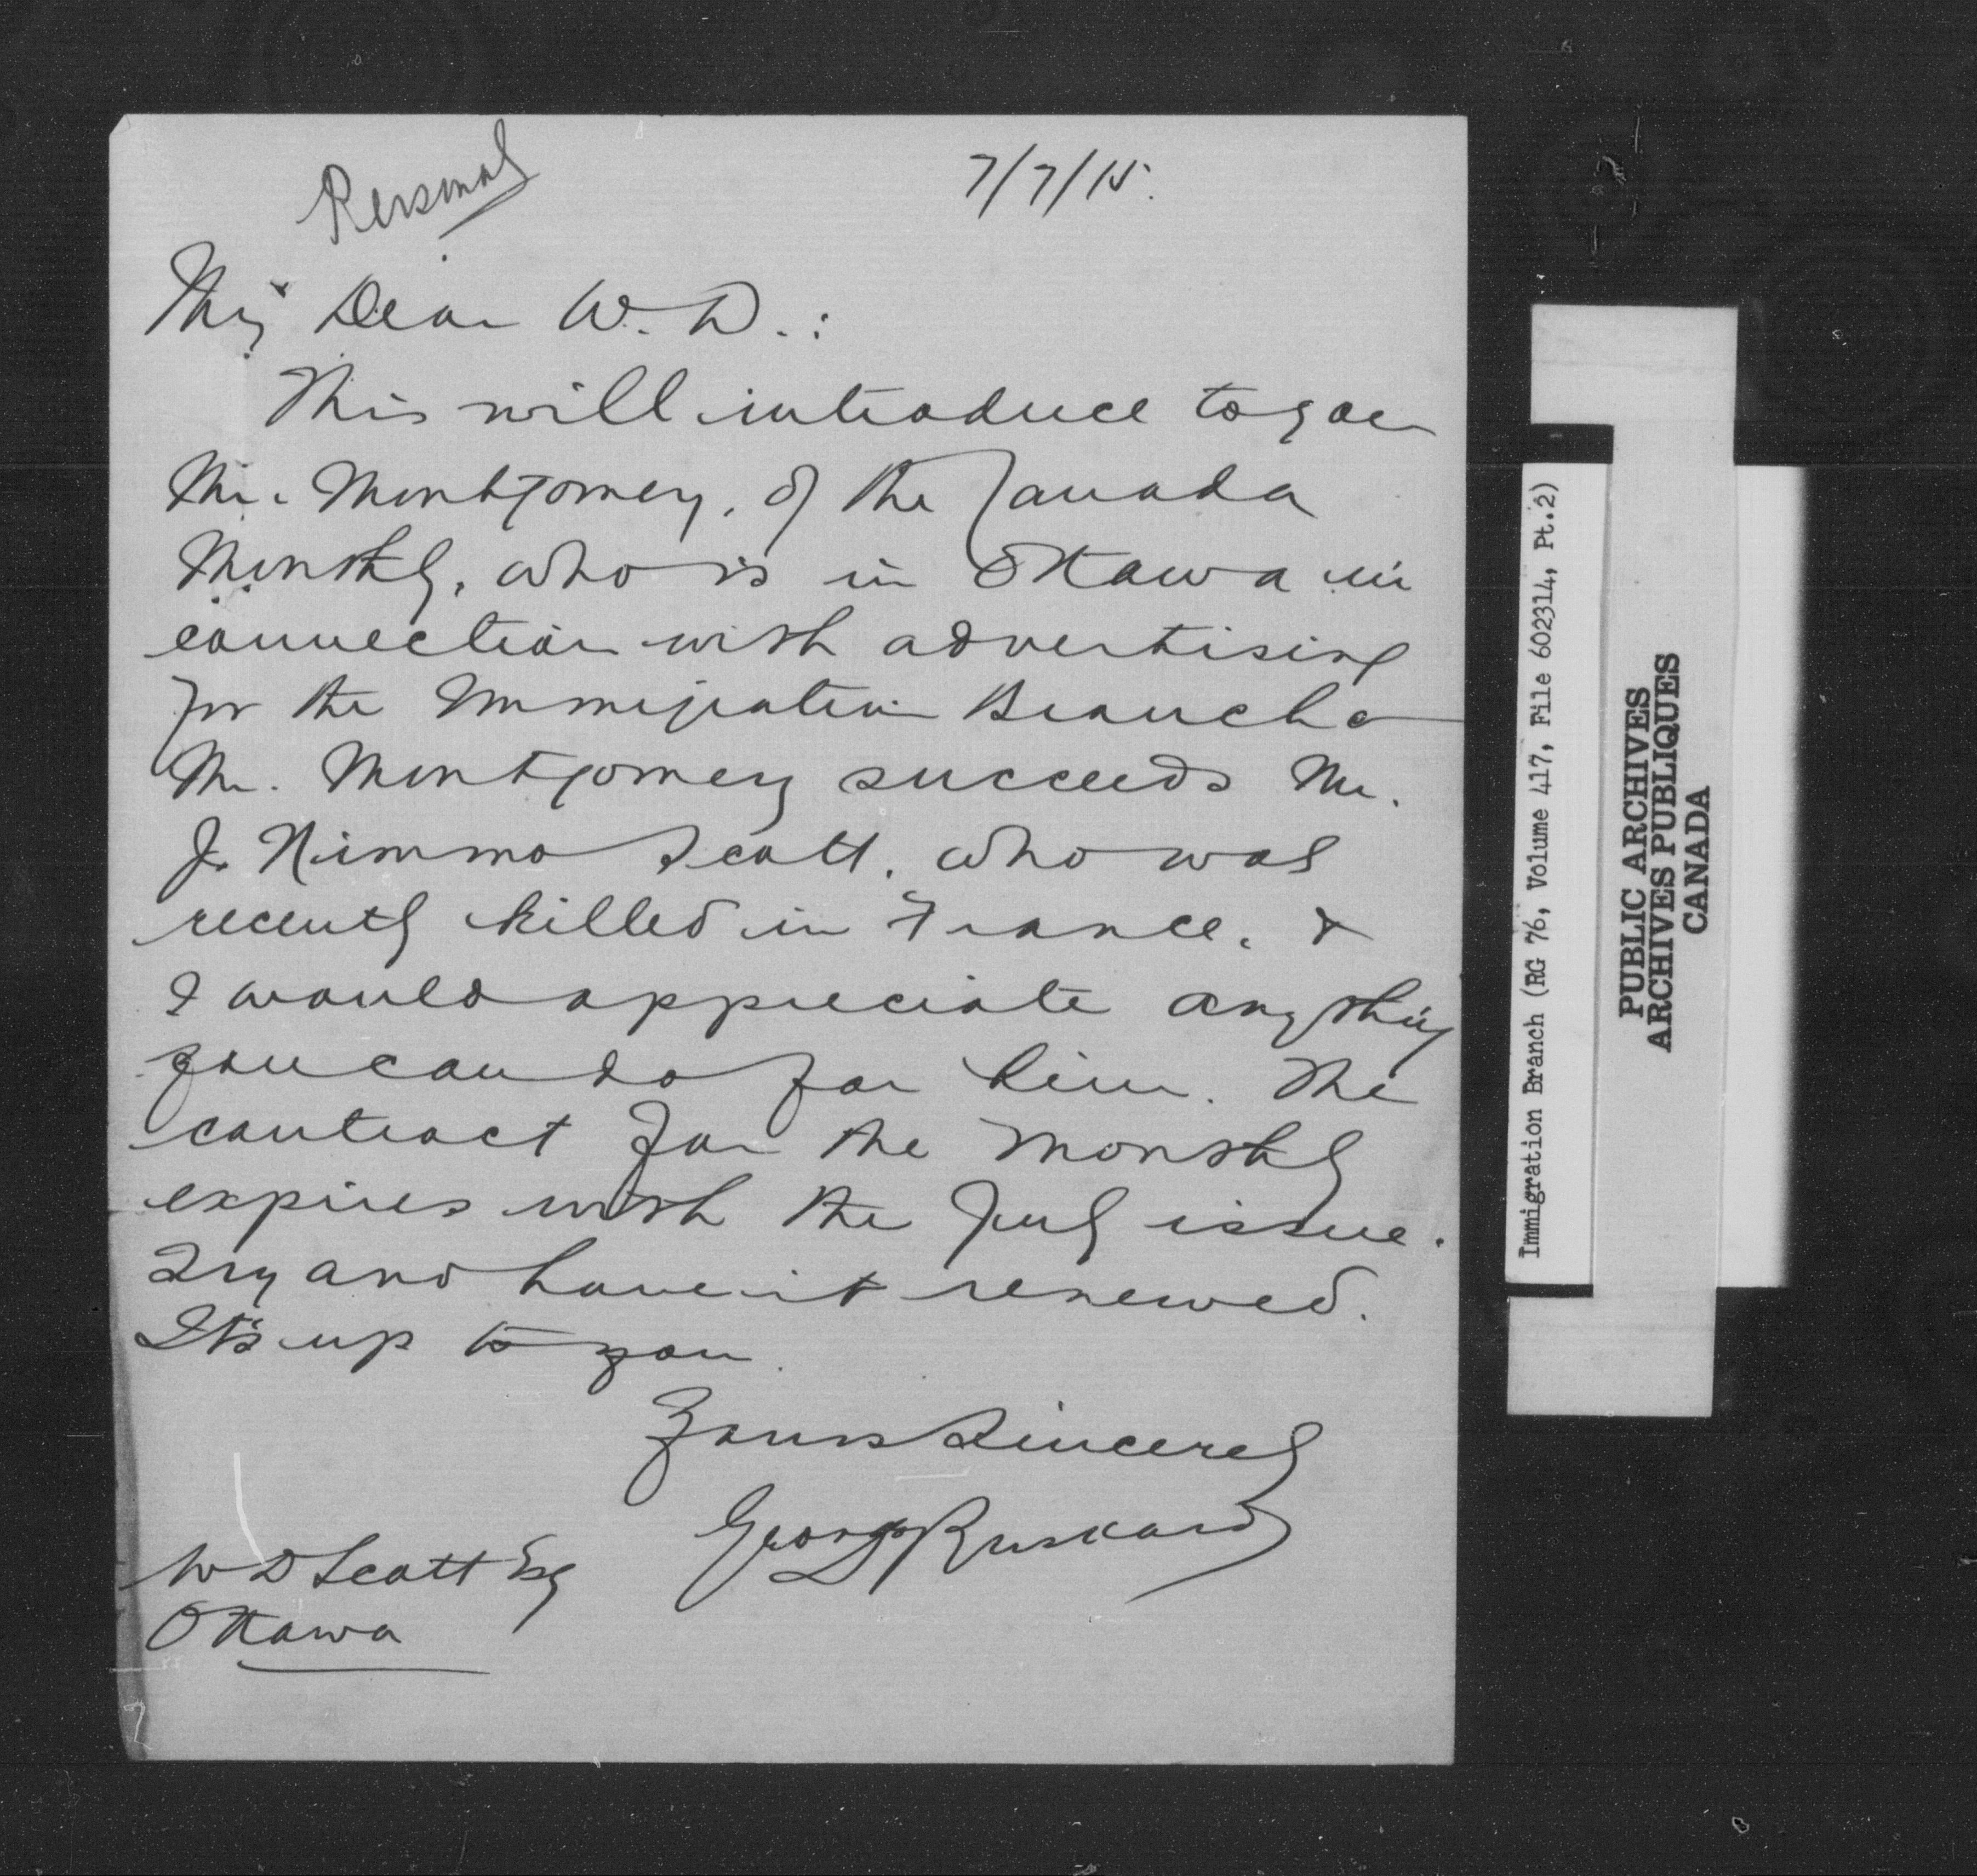 Personal
7/7/15.
My Dear W. D.:
This will introduce to you
Mr. Montgomery, of the Canada
Monthly, who is in Ottawa in
connection with advertising
for the Immigration Branch
Mr. Montgomery succeeds Mr.
J. Nimmo Scott, who was
recently killed in France. &
I would appreciate anything
you can do for him. The
contract for the Monthly
expires with the July issue.
Try and have it renewed.
It's up to you.
Yours Sincerely
George Ruskard
W D Scott Esq
Ottawa
Immigration Branch (RG 76, Volume 417, File 602314, Pt.2)
PUBLIC ARCHIVES
ARCHIVES PUBLIQUES
CANADA